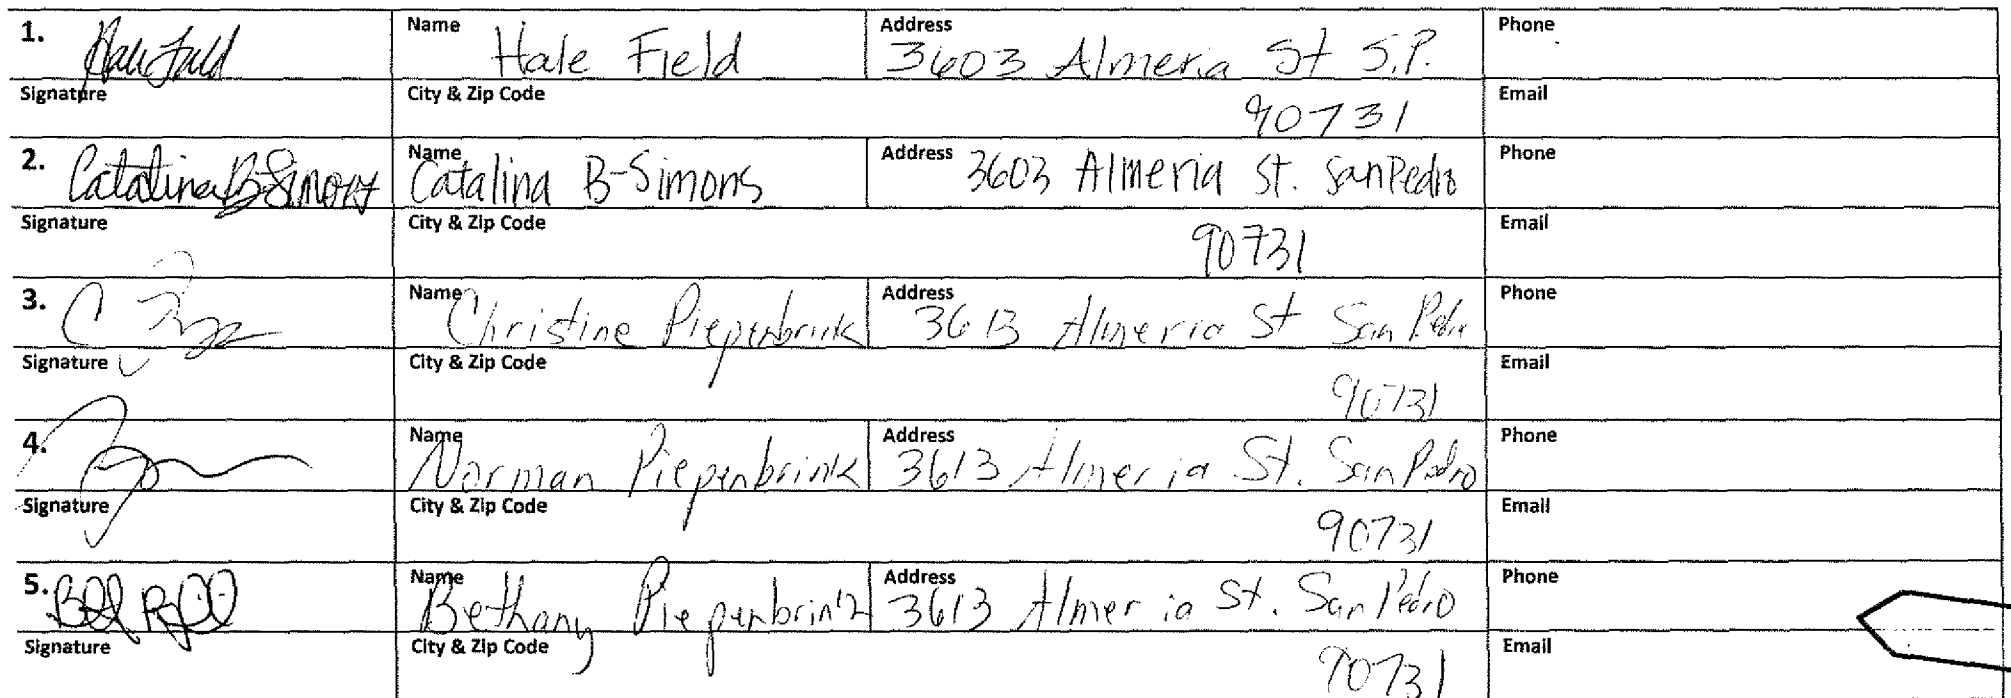 1. Hale Field Name Hale Field Address 3603 Almeria St S.P. Phone
Signature City & Zip Code 90731 Email
2. Catalina B-Simons Name Catalina B-Simons Address 3603 Almeria St. San Pedro Phone
Signature City & Zip Code 90731 Email
3. C Name Christine Piepenbrink Address 3613 Almeria St San Pedro Phone
Signature City & Zip Code 90731 Email
4. Name Norman Piepenbrink Address 3613 Almeria St. San Pedro Phone
Signature City & Zip Code 90731 Email
5. Name Bethany Piepenbrink Address 3613 Almeria St. San Pedro Phone
Signature City & Zip Code 90731 Email